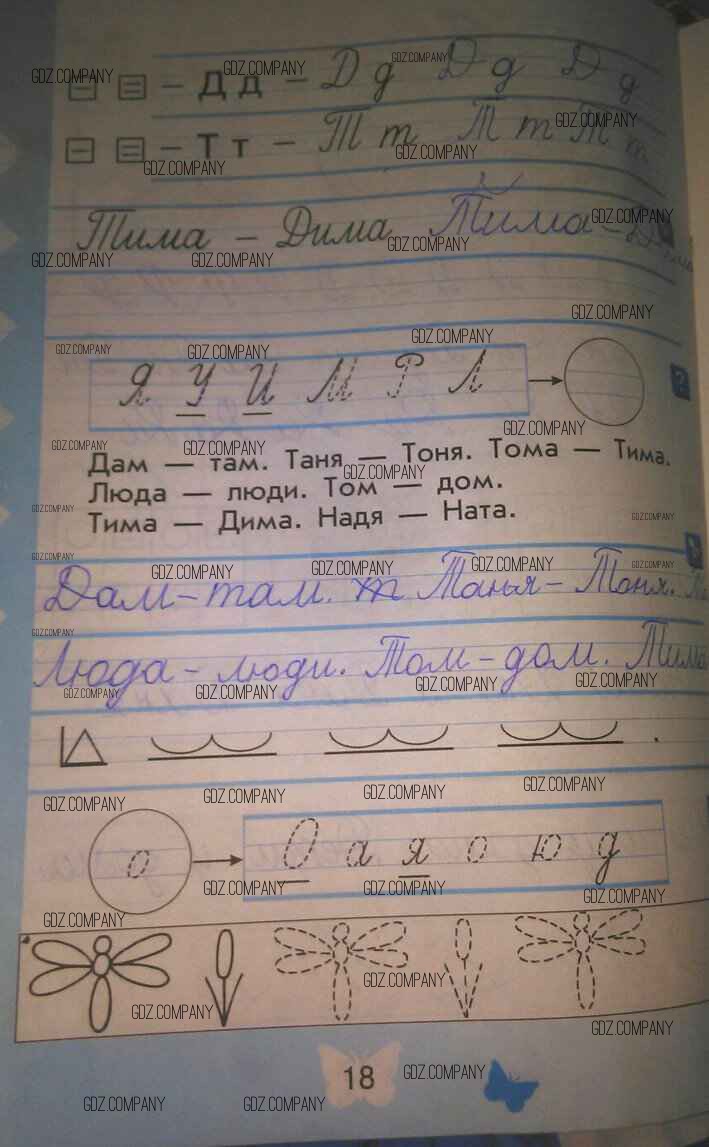 – = – Д д – Д д Д д Д д
– = – Т т – Т т Т т Т т
Тима – Дима Тима – Дима
Я У И М Р Л
Дам — там. Таня — Тоня. Тома — Тима.
Люда — люди. Том — дом.
Тима — Дима. Надя — Ната.
Дам – там. т Танья – Тоня.
Люда – люди. Том – дом. Тима
о О а я о ю д
18
GDZ.COMPANY